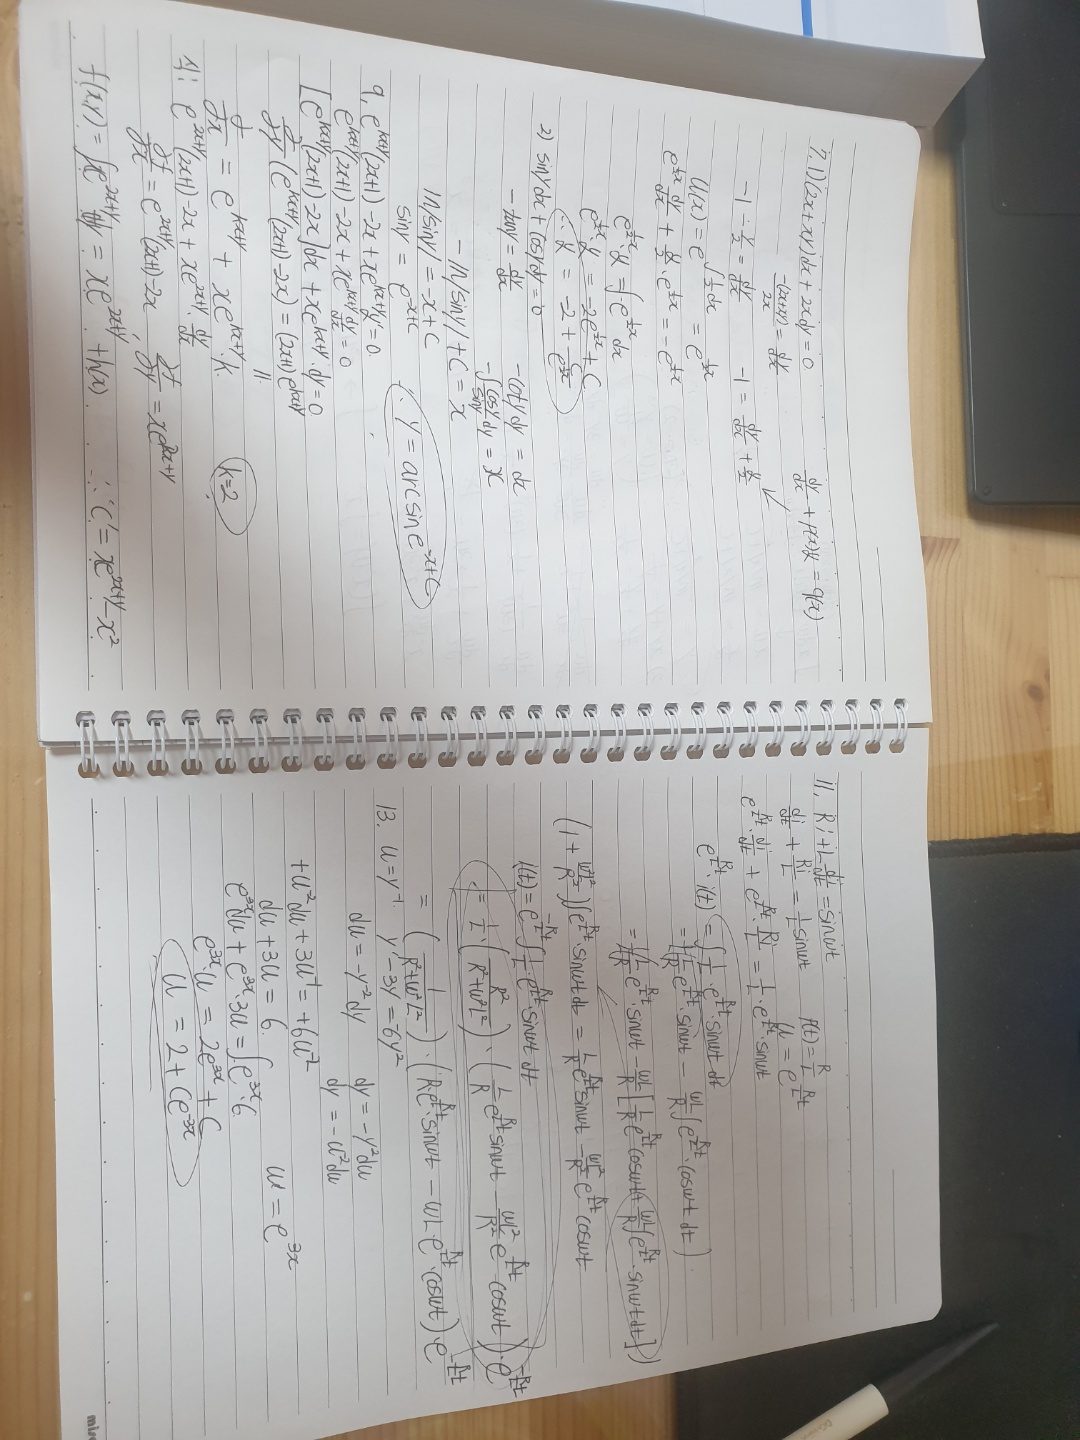 7. 1) (2x+xy)dx + 2xdy = 0
-(2x+xy)/2x = dy/dx
dy/dx + p(x)y = q(x)
-1 - y/2 = dy/dx
-1 = dy/dx + y/2
u(x) = e^∫½dx = e^½x
e^½x dy/dx + y/2 · e^½x = -e^½x
e^½x · y = ∫ e^½x dx
e^½x · y = -2e^½x + C
∴ y = -2 + C/e^½x
2) siny dx + cosy dy = 0
-tany = dy/dx
-coty dy = dx
-∫ cosy/siny dy = x
-ln|siny| + C = x
ln|siny| = -x+C
siny = e^-x+C
∴ y = arcsin e^-x+C
9. e^kx+y(2x+1) - 2x + xe^kx+y y' = 0
e^kx+y(2x+1) - 2x + xe^kx+y dy/dx = 0
[e^kx+y(2x+1) - 2x]dx + xe^kx+y · dy = 0
∂/∂y (e^kx+y(2x+1) - 2x) = (2x+1)e^kx+y
∂/∂x = e^kx+y + xe^kx+y · k
k=2
식: e^2x+y(2x+1) - 2x + xe^2x+y · dy/dx
∂f/∂x = e^2x+y(2x+1) - 2x
∂f/∂y = xe^2x+y
f(x,y) = ∫xe^2x+y dy = xe^2x+y + h(x)
∴ C = xe^2x+y - x²
11. Ri + L di/dt = sinwt
di/dt + Ri/L = 1/L sinwt
p(t) = R/L
u = e^R/L t
e^R/L t · di/dt + e^R/L t · Ri/L = 1/L · e^R/L t · sinwt
e^R/L t · i(t) = ∫ 1/L · e^R/L t · sinwt dt
= 1/L( L/R e^R/L t · sinwt - wL/R ∫ e^R/L t · coswt dt )
= L/R e^R/L t · sinwt - wL/R [ L/R e^R/L t coswt + wL/R ∫ e^R/L t · sinwt dt ] )
(1 + w²L²/R²) ∫ e^R/L t · sinwt dt = L/R e^R/L t sinwt - wL²/R² e^R/L t coswt
i(t) = e^-R/L t ∫ 1/L · e^R/L t · sinwt dt
= 1/L · ( R²/(R²+w²L²) ) · ( L/R e^R/L t sinwt - wL²/R² e^R/L t coswt ) · e^-R/L t
= ( 1/(R²+w²L²) ) · ( Re^R/L t · sinwt - wLe^R/L t · coswt ) · e^-R/L t
13. u = y^-1
y' - 3y = -6y²
du = -y^-2 dy
dy = -y² du
dy = -u^-2 du
+u^-2 du + 3u^-1 = +6u^-2
du + 3u = 6.
u = e^3x
e^3x du + e^3x · 3u = ∫ e^3x · 6
e^3x · u = 2e^3x + C
u = 2 + Ce^-3x